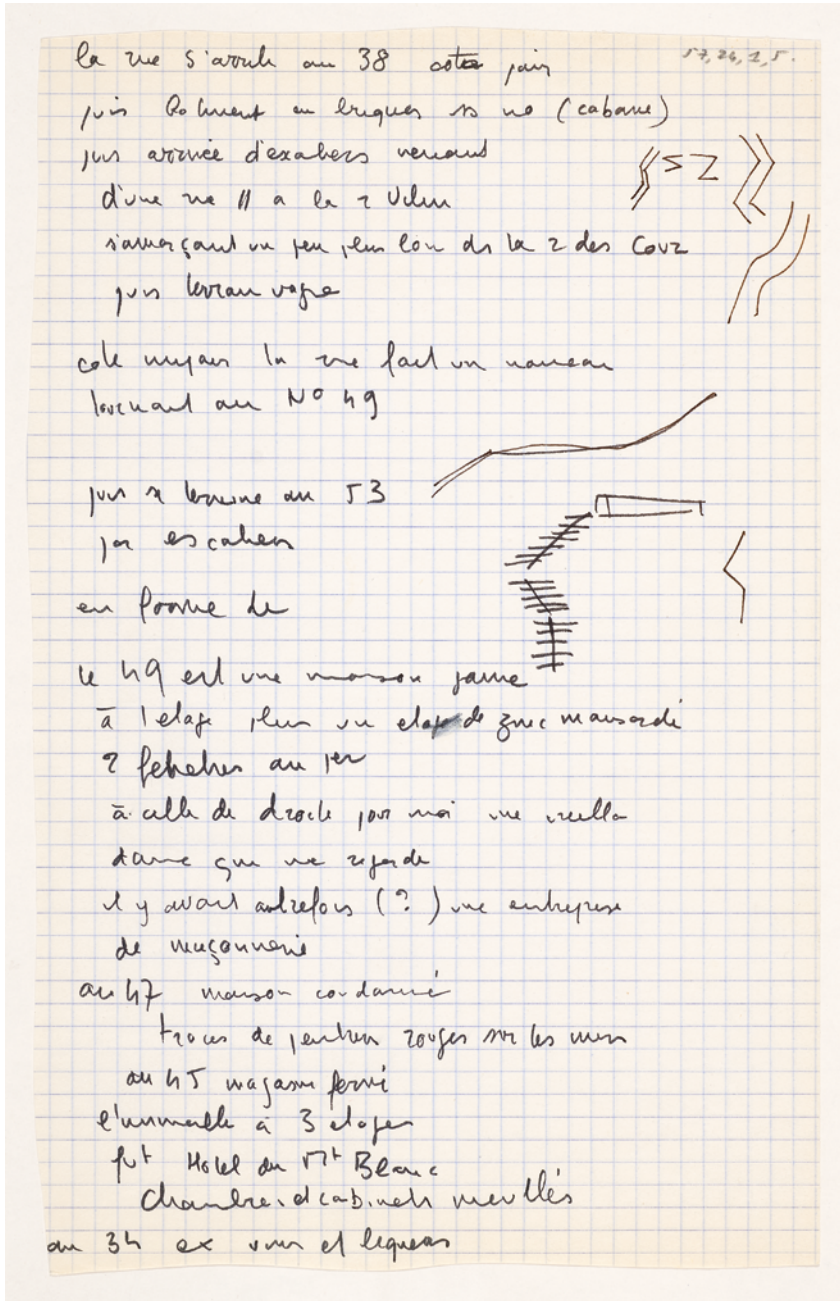 57, 24, 1, 5.
la rue s'arrete au 38 coté pair
puis batiment en briques ss no (cabane)
puis arrivée d'escaliers venant
d'une rue // a la r Vilin
s'amorçant un peu plus loin ds la r des Cour
puis terrain vague
coté impair la rue fait un nouveau
tournant au N° 49
puis se termine au 53
par escaliers
en forme de
le 49 est une maison jaune
à 1 etage plus un etage de zinc mansardé
2 fenetres au 1er
à celle de droite pour moi une vieille
dame qui me regarde
il y avait autrefois (?) une entreprise
de maçonnerie
au 47 maison condamné
traces de peinture rouges sur les murs
au 45 magasin fermé
l'immeuble à 3 etages
fut Hotel du Mt Blanc
chambres et cabinets meublés
au 34 ex vins et liqueurs